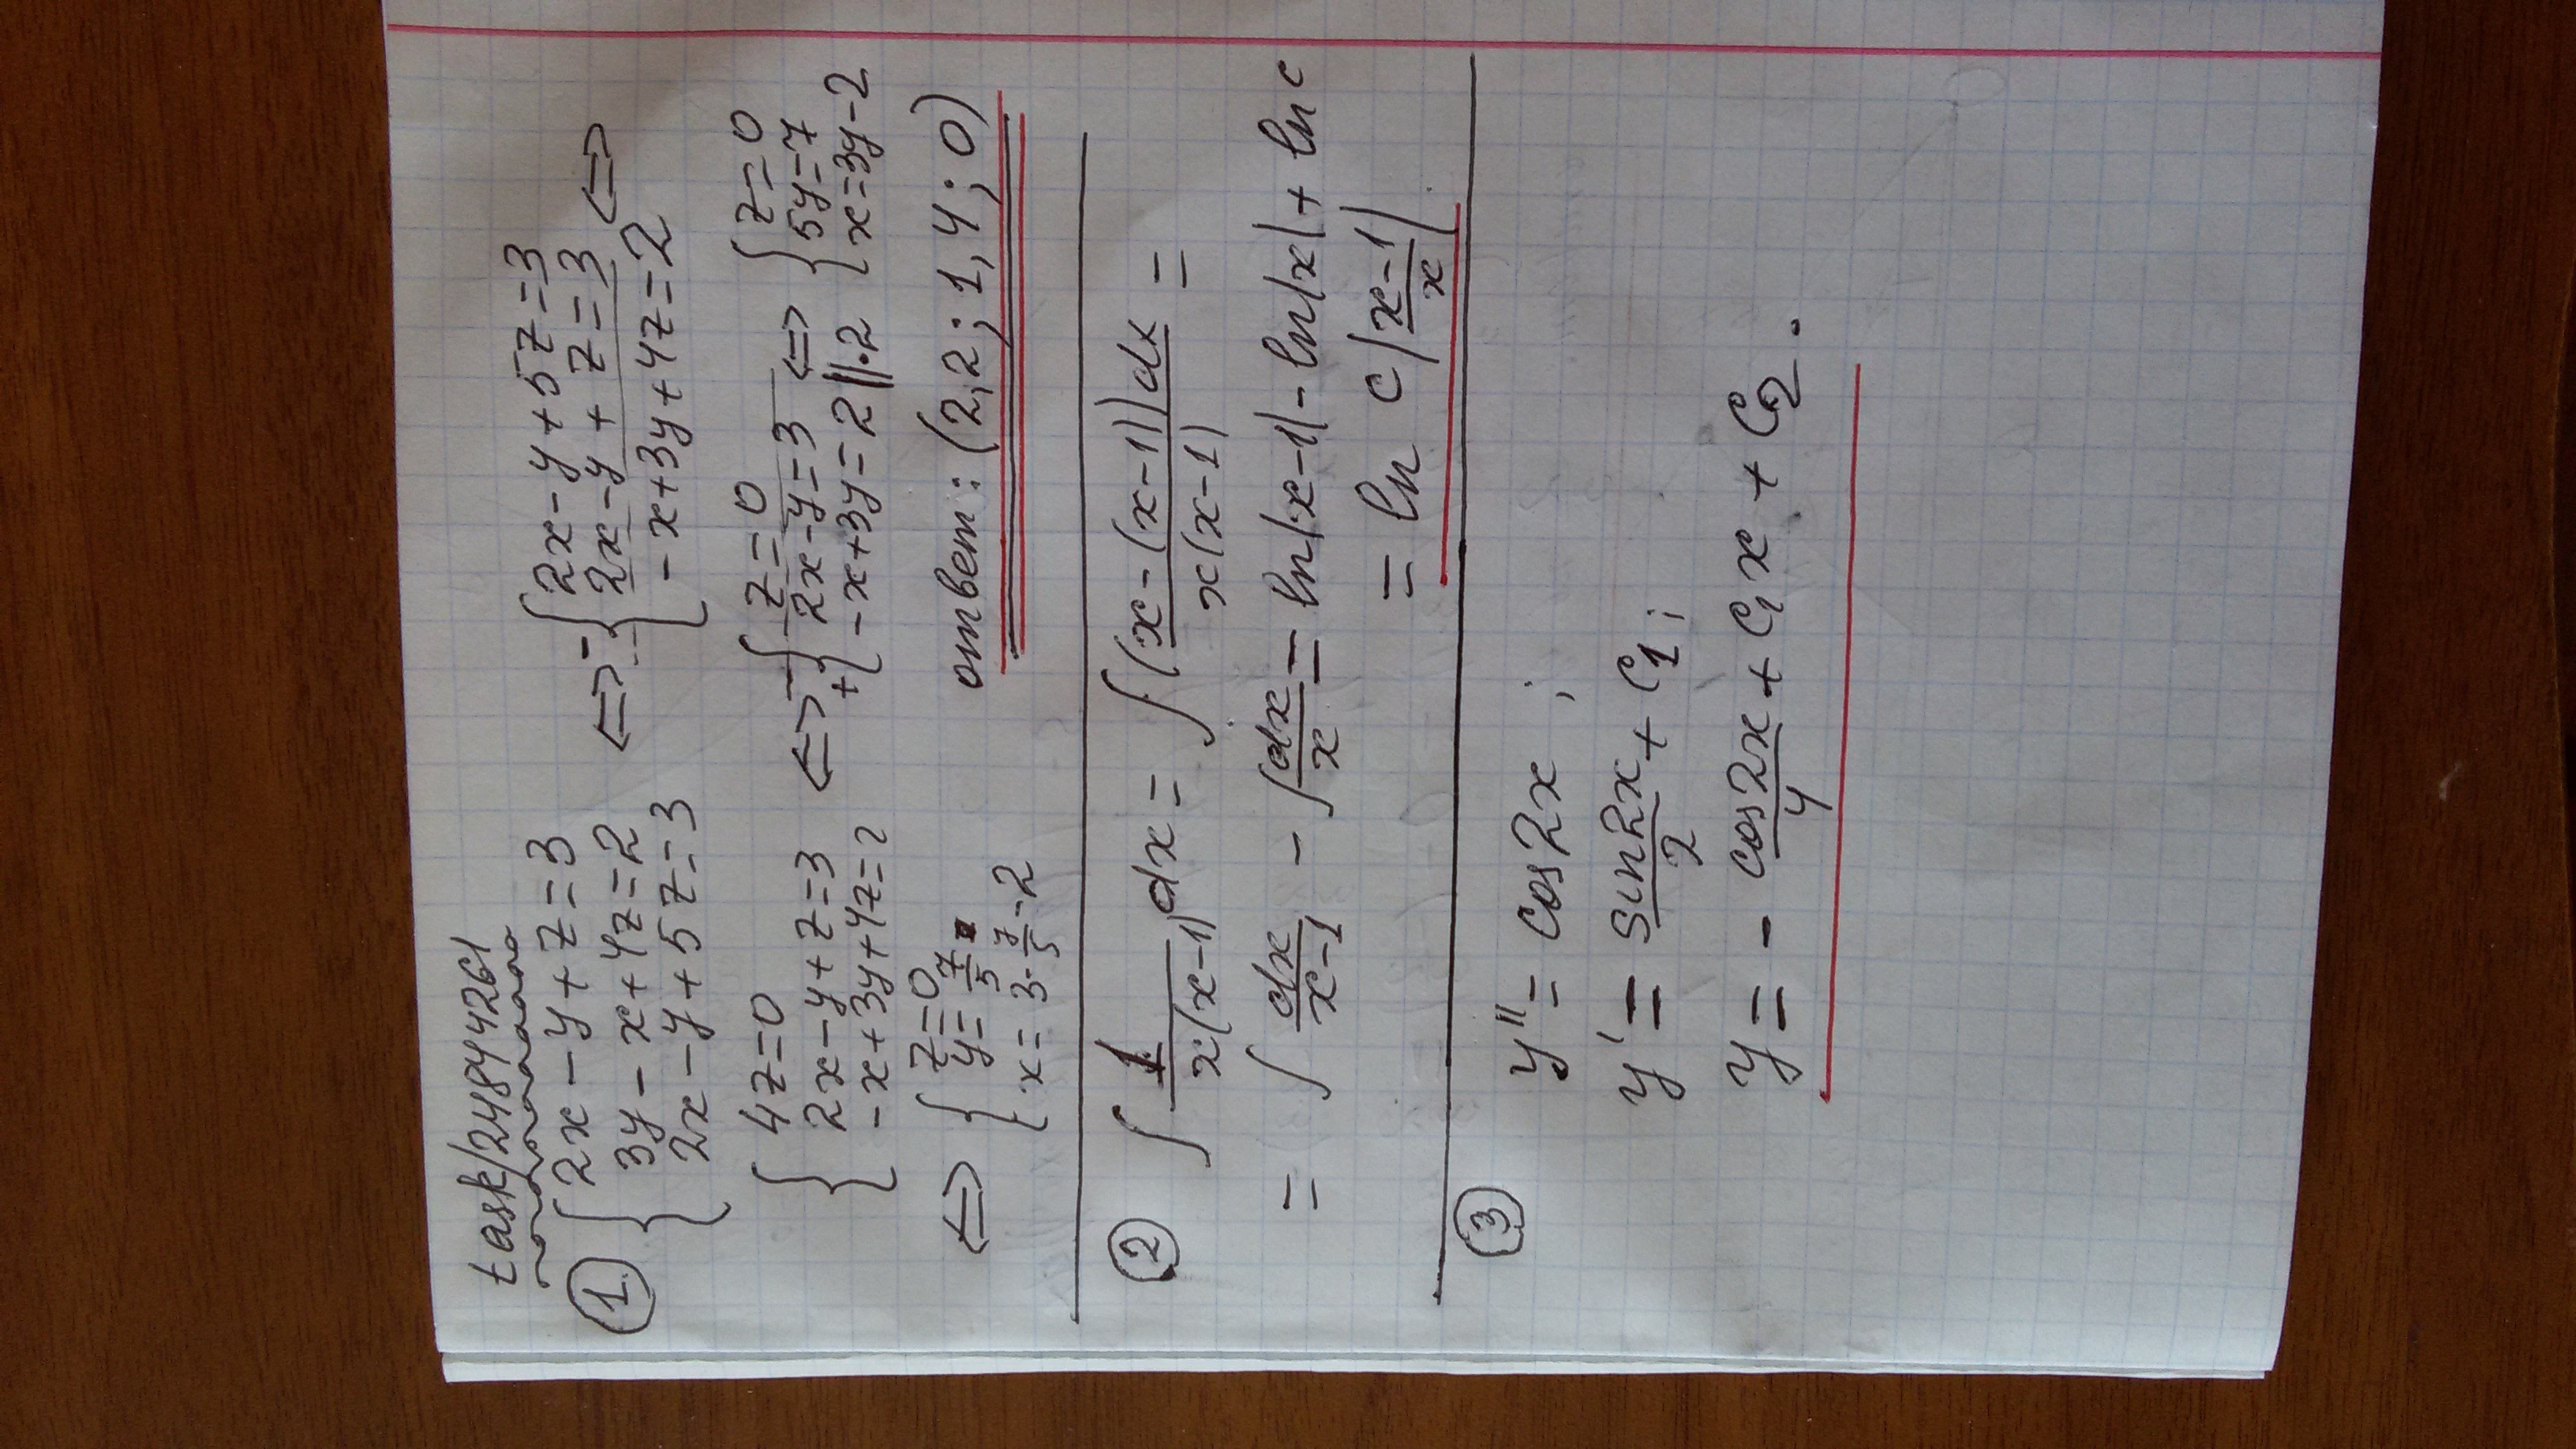 task/24844261
① { 2x - y + z = 3
3y - x + 4z = 2
2x - y + 5z = 3
⇔ - { 2x - y + 5z = 3
2x - y + z = 3
- x + 3y + 4z = 2 ⇔
{ 4z = 0
2x - y + z = 3
- x + 3y + 4z = 2
⇔ + { z = 0
2x - y = 3
- x + 3y = 2 ||·2
⇔ { z = 0
5y = 7
x = 3y - 2
⇔ { z = 0
y = 7/5
x = 3·7/5 - 2
ответ: (2,2; 1,4; 0)
② ∫ 1/(x(x-1)) dx = ∫ (x-(x-1))dx/(x(x-1)) =
= ∫ dx/(x-1) - ∫ dx/x = ln|x-1| - ln|x| + ln c
= ln c|(x-1)/x|.
③ y'' = cos2x ;
y' = sin2x/2 + C₁ ;
y = - cos2x/4 + C₁x + C₂.